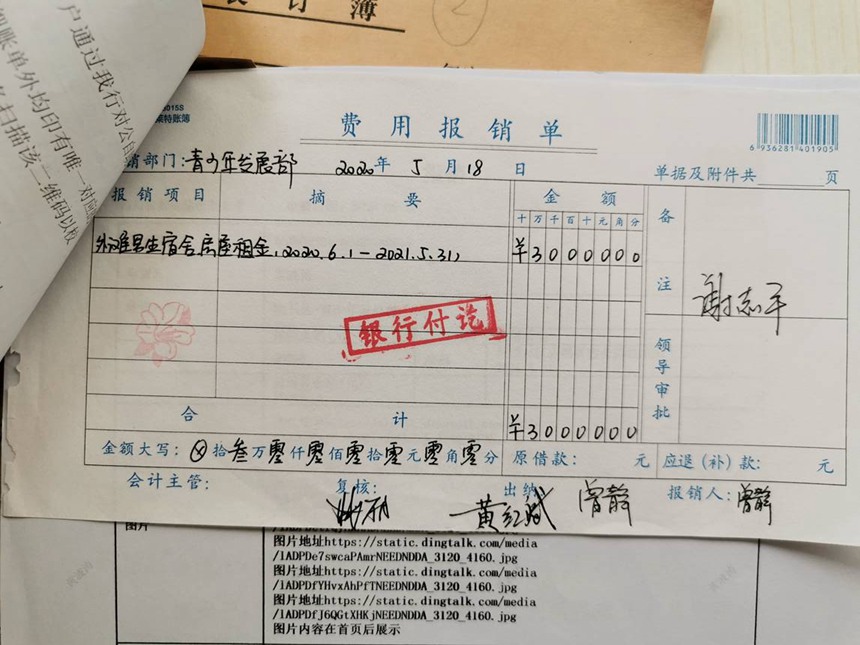 订簿
户通过我行对公自
账单外均印有唯一对应
扫描该二维码以校
费用报销单
6 936281 401905
销部门：青少年发展部 2020年 5月 18日 单据及附件共 页
报销项目 摘要 金额 备注
十 万 千 百 十 元 角 分
外滩男生宿舍房屋租金，2020.6.1－2021.5.31， ¥3000000
谢志平
银行付讫
领导审批
合计 ¥3000000
金额大写：ⓧ拾叁万零仟零佰零拾零元零角零分 原借款： 元 应退（补）款： 元
会计主管： 复核： 出纳 黄红斌 曾静 报销人：曾静
图片
图片地址https://static.dingtalk.com/media
/lADPDe7swcaPAmrNEEDNDDA_3120_4160.jpg
图片地址https://static.dingtalk.com/media
/lADPDfYHvxAhPfTNEEDNDDA_3120_4160.jpg
图片地址https://static.dingtalk.com/media
/lADPDfJ6QGtXHKjNEEDNDDA_3120_4160.jpg
图片内容在首页后展示